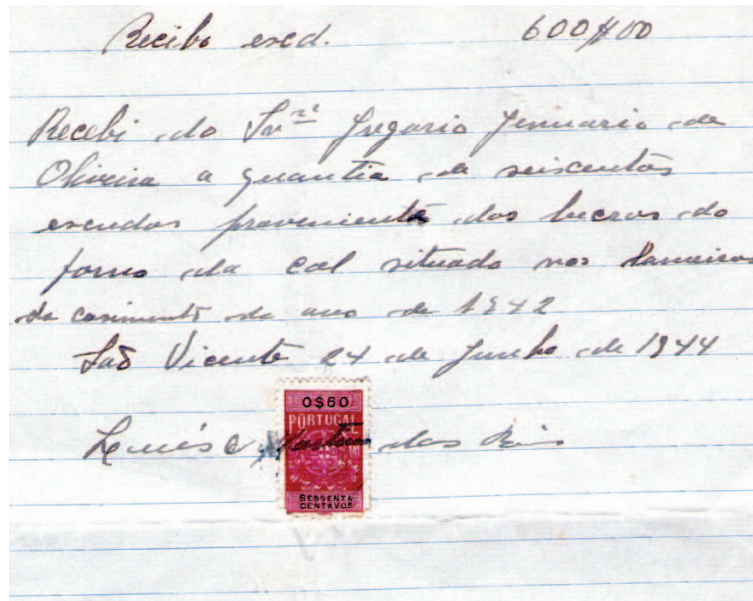 Recibo escd. 600$00
Recebi do Snr. Gregorio Jenuario de
Oliveira a quantia de seiscentos
escudos provenientes dos lucros do
forno da cal situado nos Lameiros
do cosimento do ano de 1942
São Vicente 24 de Junho de 1944
0$60
PORTUGAL
Luís dos Reis
SESSENTA
CENTAVOS